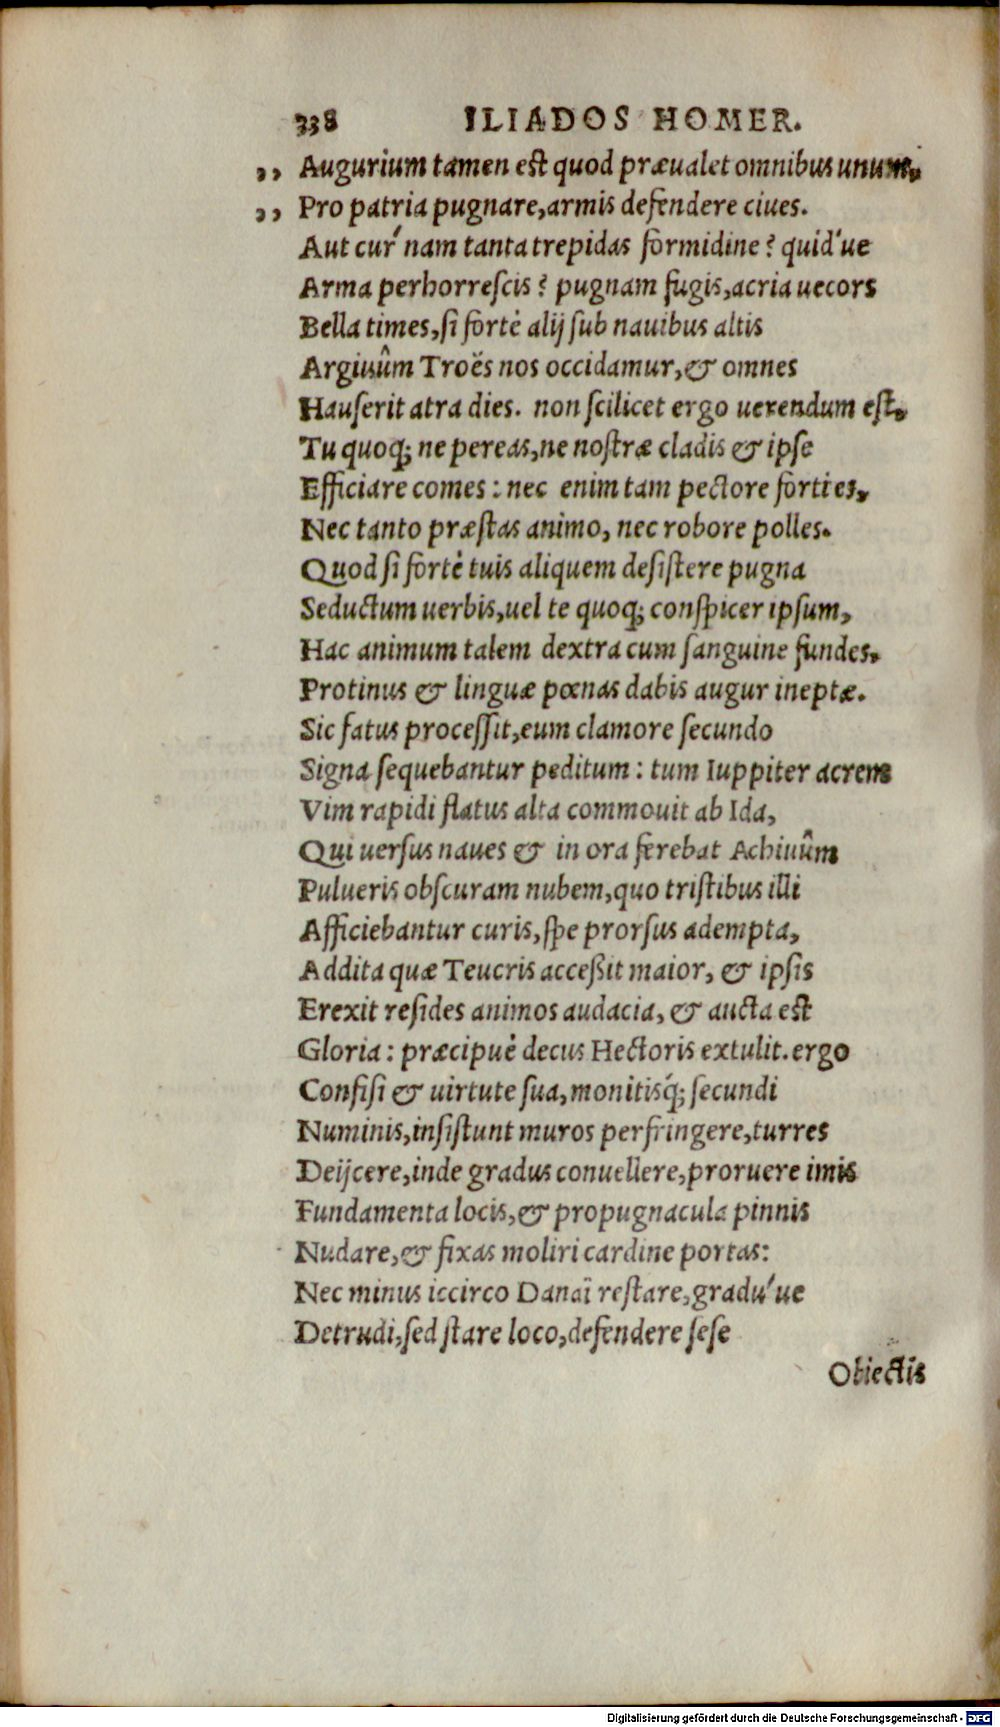 338 ILIADOS HOMER.
,, Augurium tamen est quod præualet omnibus unum,
,, Pro patria pugnare, armis defendere ciues.
Aut cur´nam tanta trepidas formidine? quid´ue
Arma perhorrescis? pugnam fugis, acria uecors
Bella times, si fortè alij sub nauibus altis
Argiuûm Troës nos occidamur, & omnes
Hauserit atra dies. non scilicet ergo uerendum est,
Tu quoq; ne pereas, ne nostræ cladis & ipse
Efficiare comes: nec enim tam pectore forti es,
Nec tanto præstas animo, nec robore polles.
Quod si fortè tuis aliquem desistere pugna
Seductum uerbis, uel te quoq; conspicer ipsum,
Hac animum talem dextra cum sanguine fundes,
Protinus & linguæ pœnas dabis augur ineptæ.
Sic fatus processit, eum clamore secundo
Signa sequebantur peditum: tum Iuppiter acrem
Vim rapidi flatus alta commouit ab Ida,
Qui uersus naues & in ora ferebat Achiuûm
Pulueris obscuram nubem, quo tristibus illi
Afficiebantur curis, spe prorsus adempta,
Addita quæ Teucris acceßit maior, & ipsis
Erexit resides animos audacia, & aucta est
Gloria: præcipuè decus Hectoris extulit. ergo
Confisi & uirtute sua, monitisq́; secundi
Numinis, insistunt muros perfringere, turres
Deijcere, inde gradus conuellere, proruere imis
Fundamenta locis, & propugnacula pinnis
Nudare, & fixas moliri cardine portas:
Nec minus iccirco Danaî restare, gradu´ue
Detrudi, sed stare loco, defendere sese
Obiectis
Digitalisierung gefördert durch die Deutsche Forschungsgemeinschaft - DFG